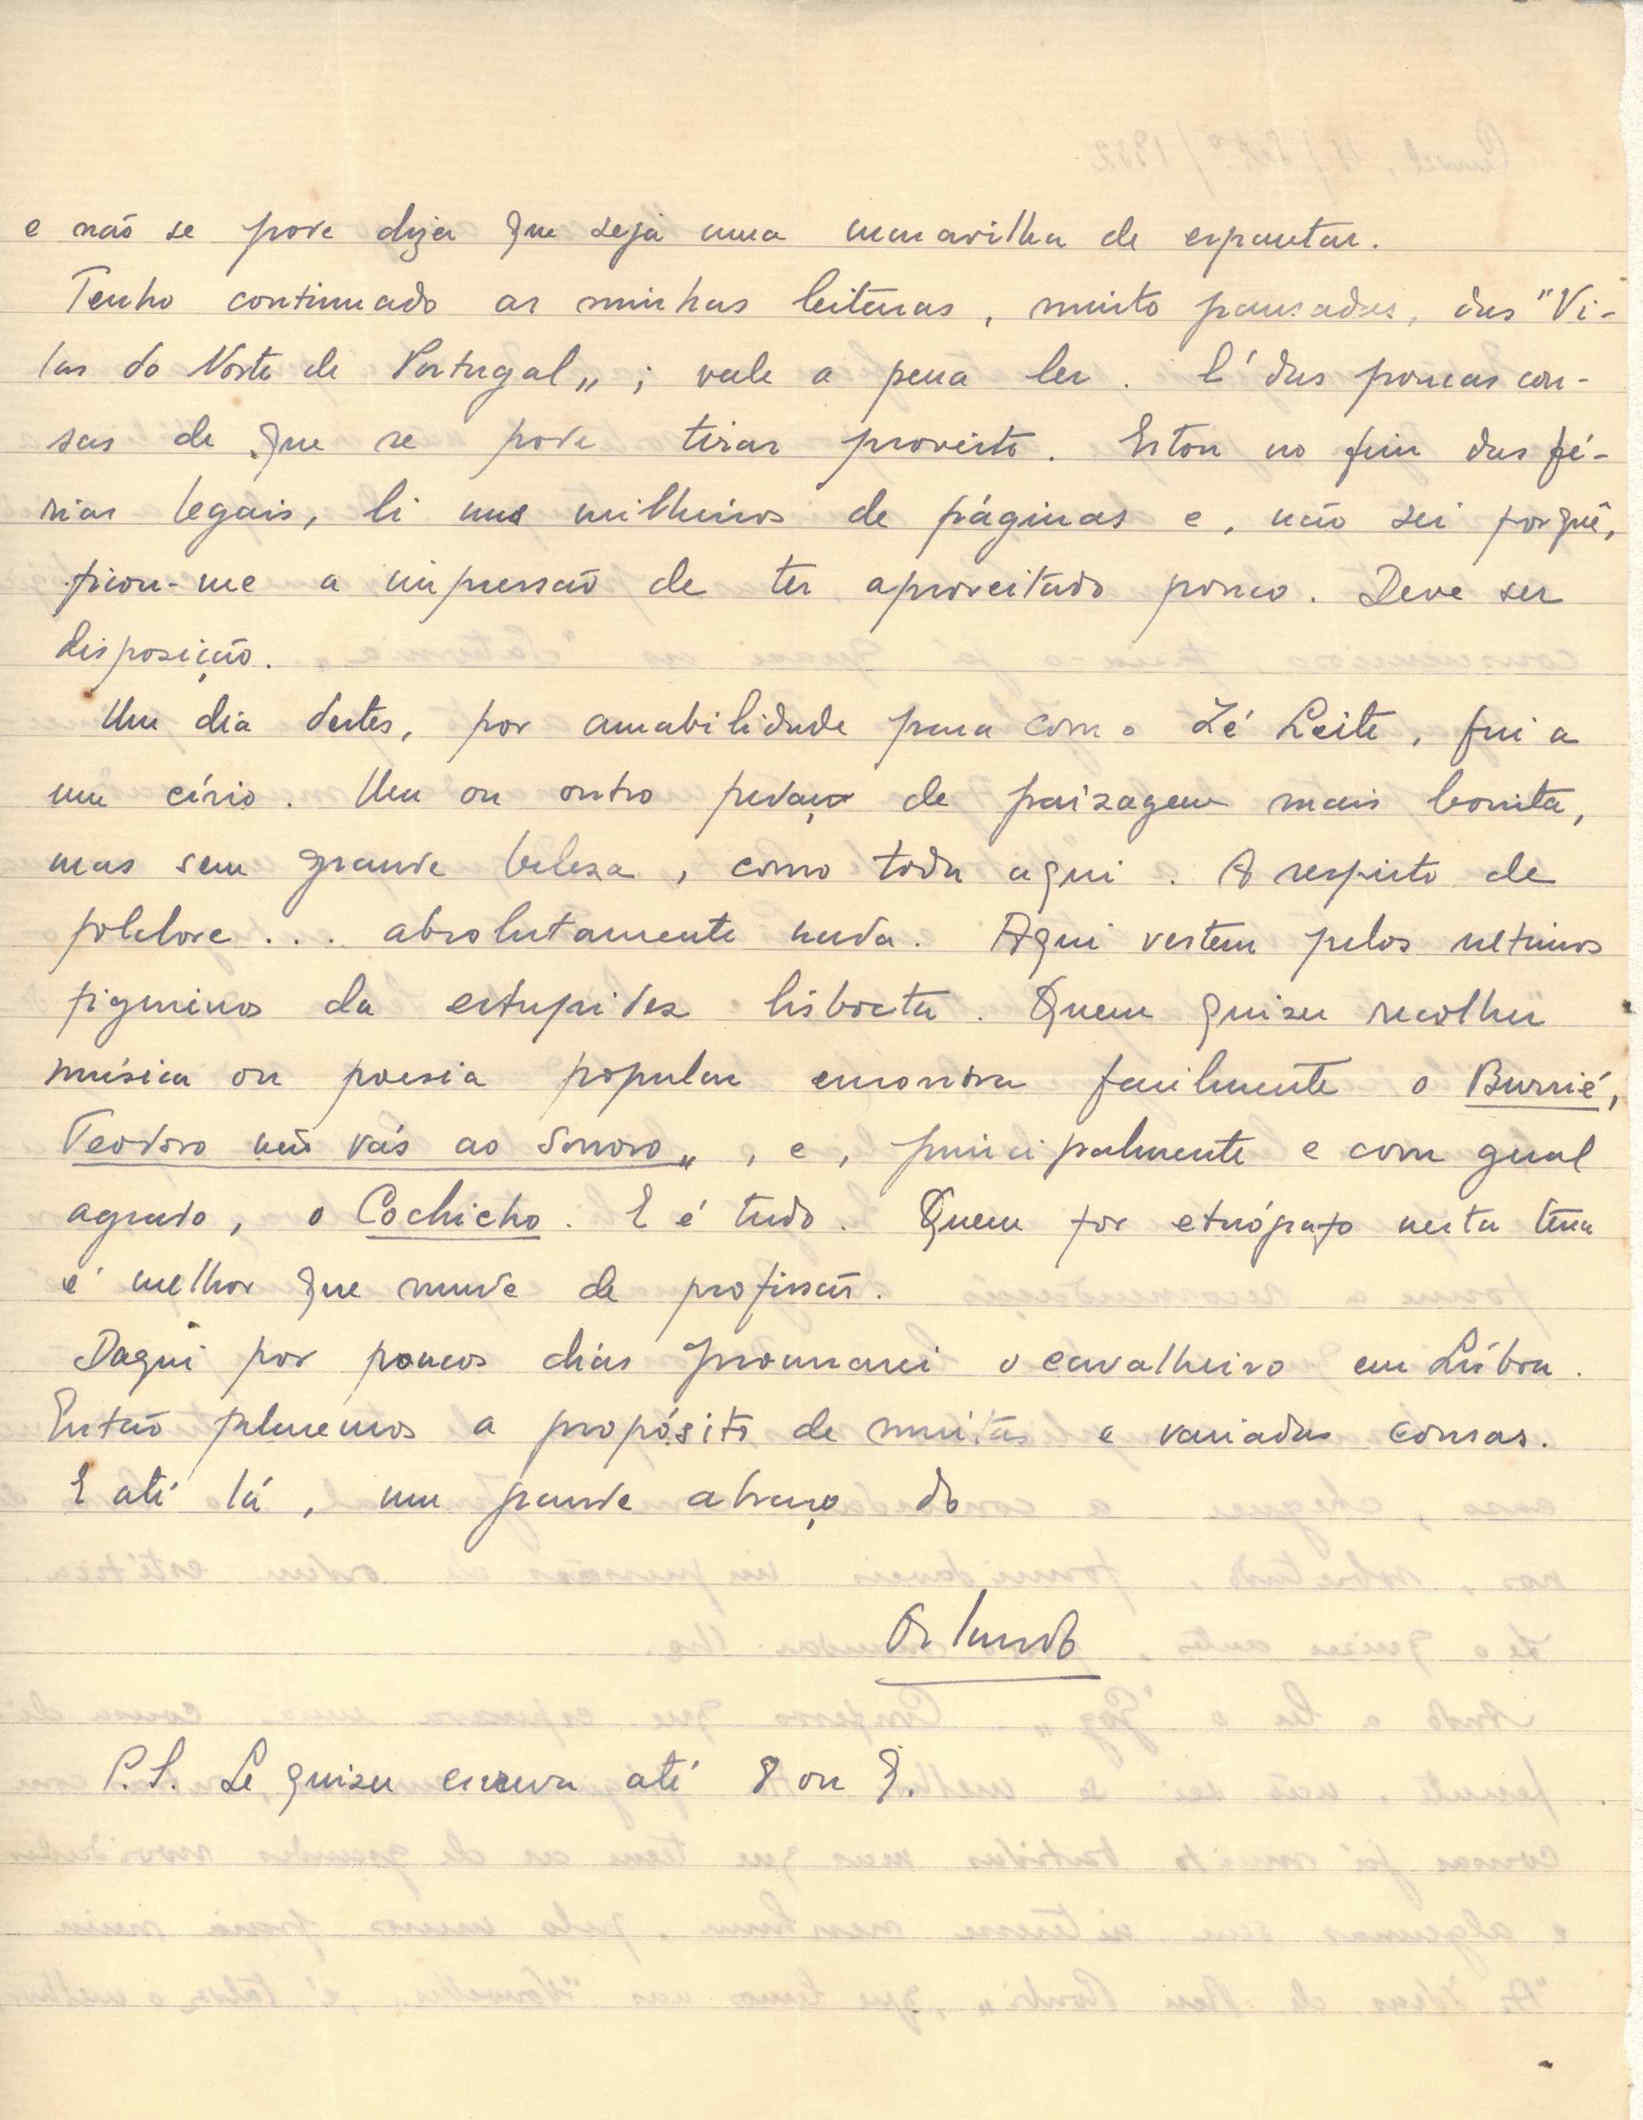 e não se pode dizer que seja uma maravilha de espantar.
Tenho continuado as minhas leituras, muito pausadas, das "Vi-
las do Norte de Portugal„ ; vale a pena ler. É das poucas cou-
sas de que se pode tirar proveito. Estou no fim das fé-
rias legais, li uns milheiros de páginas e, não sei porquê,
ficou-me a impressão de ter aproveitado pouco. Deve ser
disposição.
Um dia destes, por amabilidade para com o Zé Leite, fui a
um círio. Um ou outro pedaço de paizagem mais bonita,
mas sem grande beleza, como toda aqui. A respeito de
folclore ... absolutamente nada. Aqui vestem pelos ultimos
figurinos da estupidez lisboeta. Quem quizer recolher
música ou poesia popular encontra facilmente o Burrié,
Teodoro não vás ao Sonoro„, e, principalmente e com geral
agrado, o Cochicho. E é tudo. Quem for etnógrafo nesta terra
é melhor que mude de profissão.
Daqui por poucos dias procurarei o cavalheiro em Lisboa.
Então falaremos a propósito de muitas e variadas cousas.
E até lá, um grande abraço do
Orlando
P.S. Se quizer escreva até 8 ou 9.